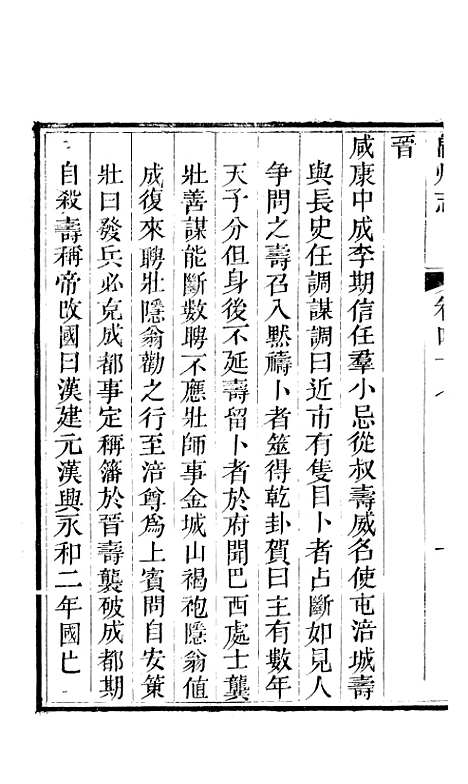 州志
卷四十八
晉
咸康中成李期信任羣小忌從叔壽威名使屯涪城壽
與長史任調謀調曰近市有隻目卜者占斷如見人
争問之壽召入黙禱卜者筮得乾卦賀曰主有數年
天子分但身後不延壽留卜者於府開巴西處士龔
壯善謀能斷數聘不應壯師事金城山褐袍隱翁值
成復來聘壯隱翁勸之行至涪尊為上賓問自安策
壯曰發兵必克成都事定稱籓於晉壽襲破成都期
自殺壽稱帝改國曰漢建元漢興永和二年國亡